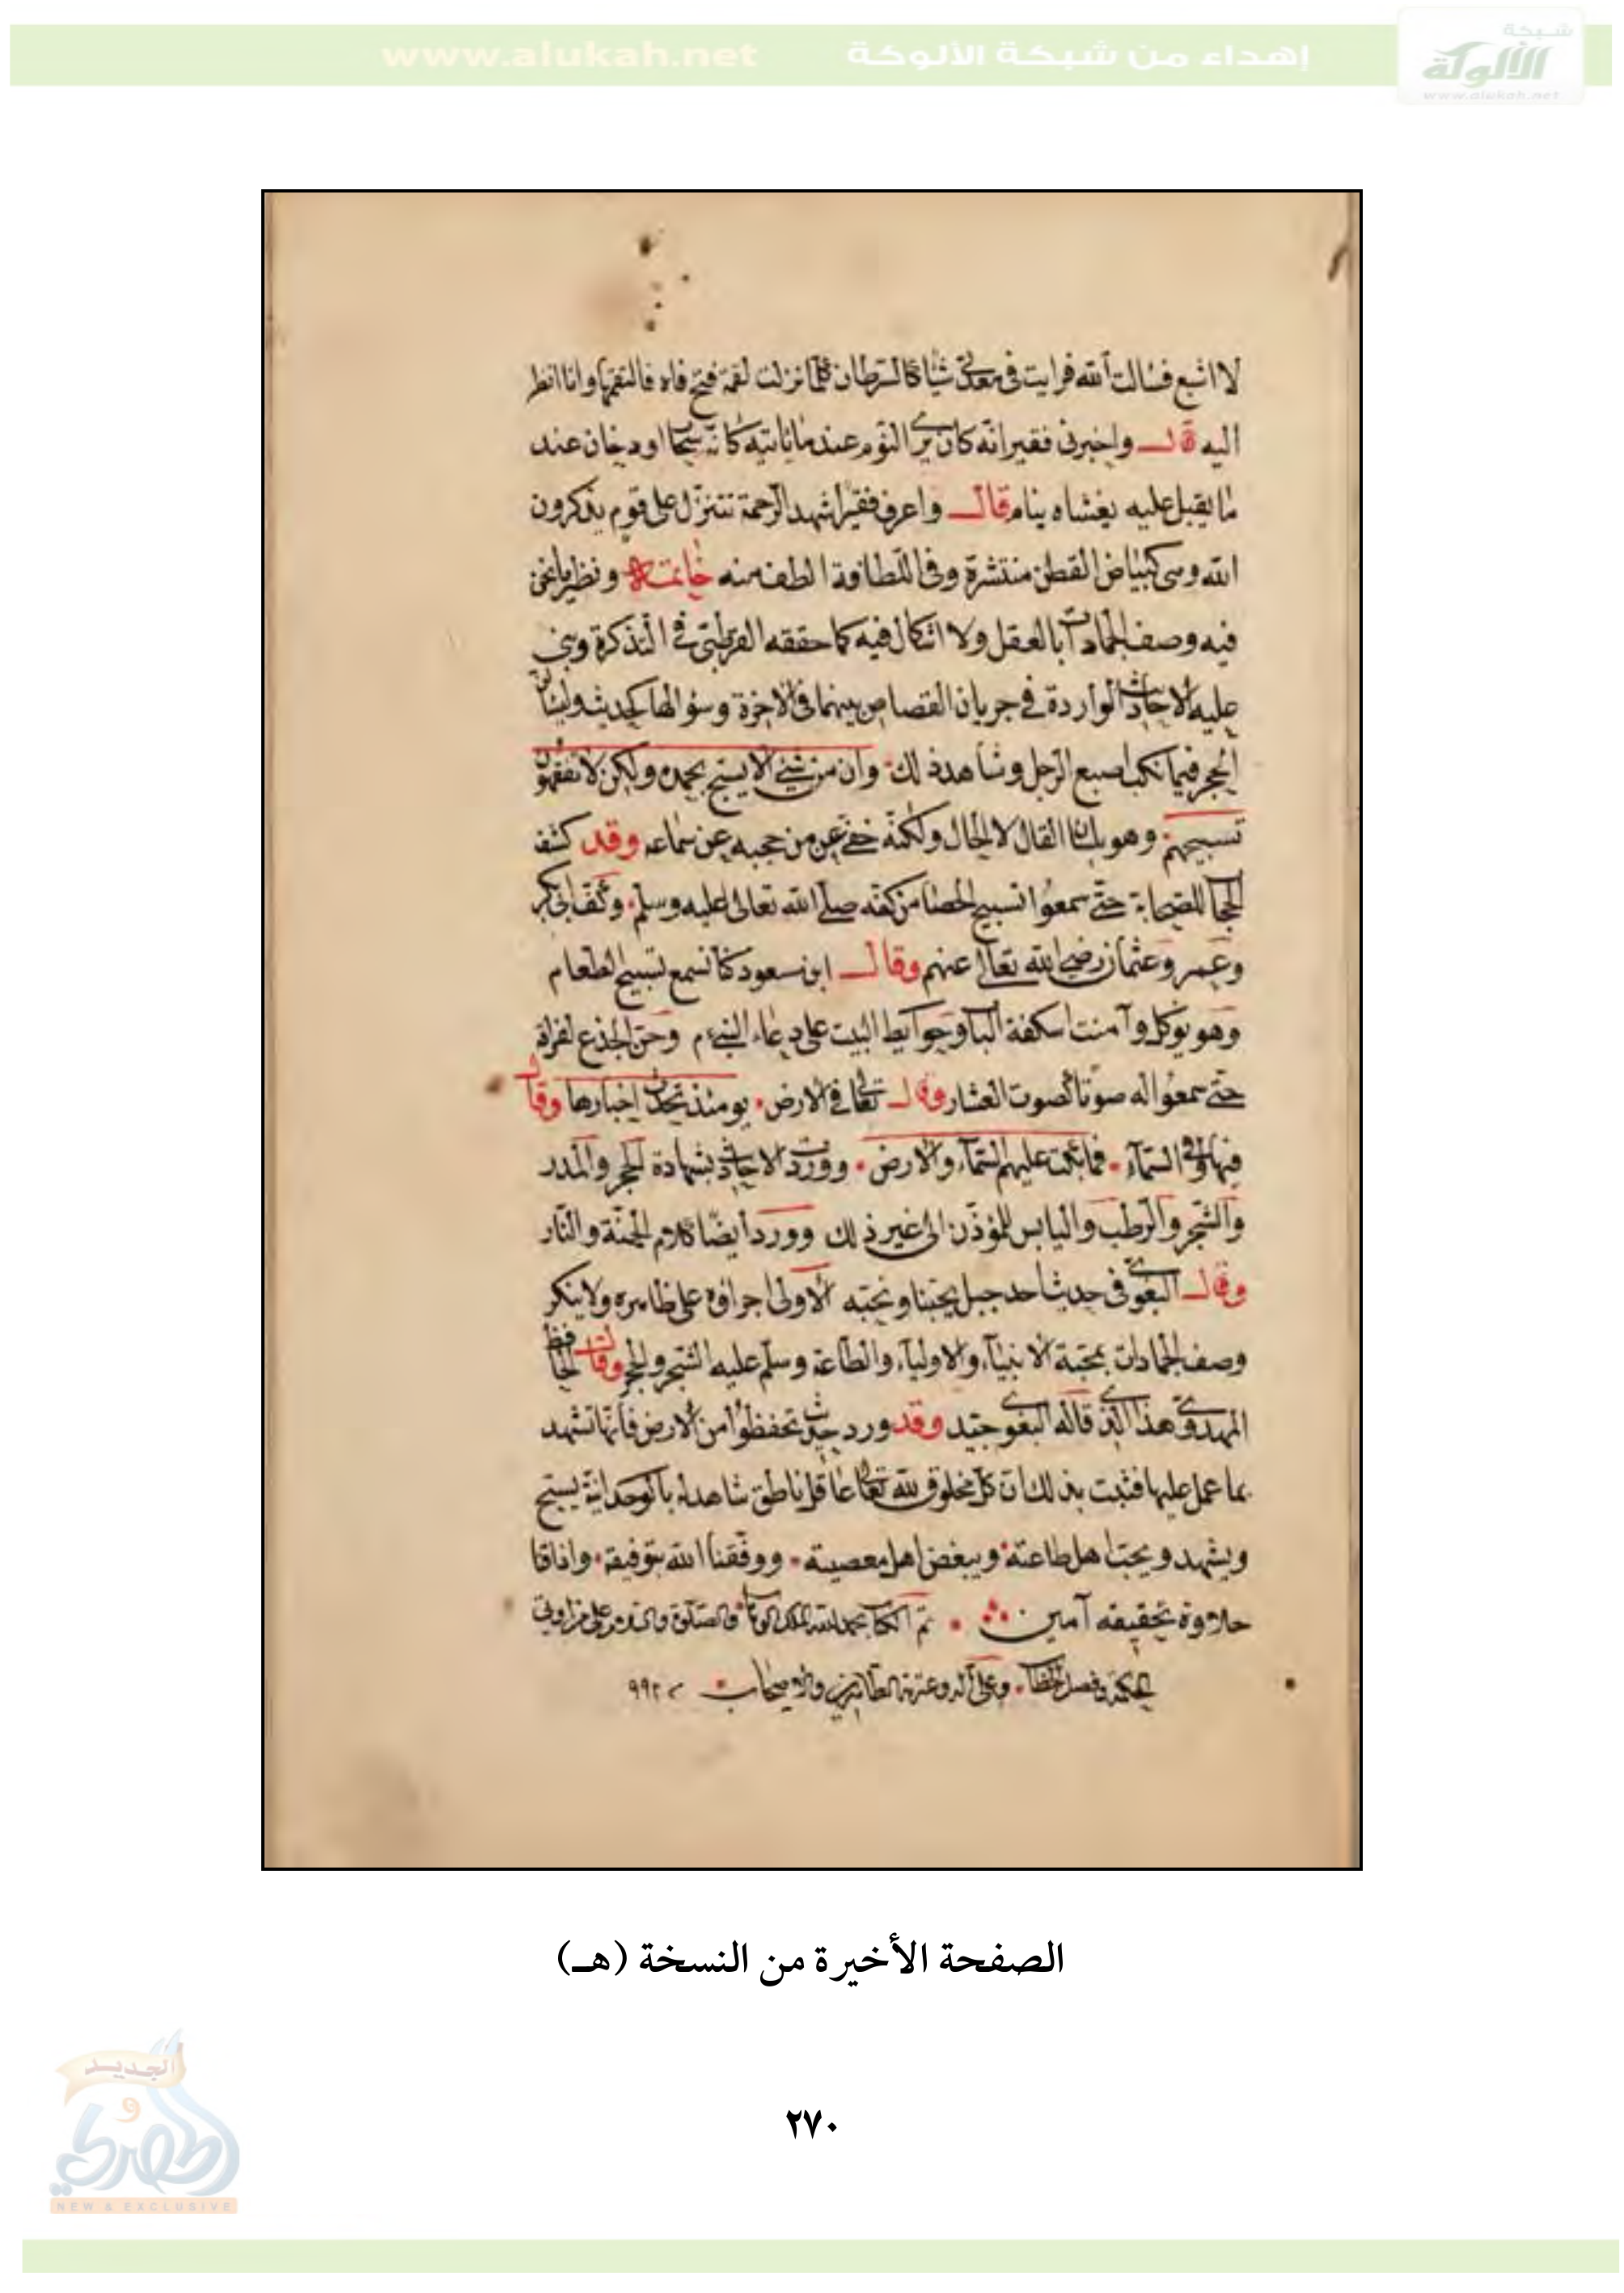 شبكة
الألوكة
www.alukah.net
إهداء من شبكة الألوكة www.alukah.net
لا اشبع فسالت الله فرايت في معدتي شيأ كالسرطان كلما نزلت لقمة فتح فاه فالتقمها وانا انظر
اليه قال واخبرني فقير انه كان يرى النوم عندما ياتيه كانه سحاب او دخان عند
ما يقبل عليه يغشاه ينام قال واعرف فقيرا شهد الرحمة تتنزل على قوم يذكرون
الله وهي كبياض القطن منتشرة وفي اللطافة الطف منه خاتمة ونظير ما نحن
فيه وصف الجمادات بالعقل ولا اشكال فيه كما حققه القرطبي في التذكرة وبنى
عليه الاحاديث الواردة في جريان القصاص بينهما في الاخرة وسؤالها كحديث وليسئلن
الحجر فيما نكب اصبع الرجل وشاهد ذلك وان من شيء الا يسبح بحمده ولكن لا تفقهون
تسبيحهم وهو بلسان القال لا الحال ولكنه خفي عن من حجبه عن سماعه وقد كشف
الحجاب للصحابة حتى سمعوا تسبيح الحصا من كفه صلى الله تعالى عليه وسلم وكف ابي بكر
وعمر وعثمان رضي الله تعالى عنهم وقال ابن مسعود كنا نسمع تسبيح الطعام
وهو يؤكل وآمنت اسكفة الباب وحوايط البيت على دعاء النبي م وحن الجذع لفراقه
حتى سمعوا له صوتا كصوت العشار وقال تعالى في الارض يومئذ تحدث اخبارها وقال
فيها وفي السمآء فما بكت عليهم السمآء والارض ووردت الاحاديث بشهادة الحجر والمدر
والشجر والرطب واليابس للمؤذن الى غير ذلك وورد أيضا كلام الجنة والنار
وقال البغوي في حديث احد جبل يحبنا ونحبه الاولى اجراؤه على ظاهره ولا ينكر
وصف الجمادات بمحبة الانبيآء والاوليآء والطاعة وسلم عليه الشجر والحجر وقال الحافظ
المهدوي هذا الذي قاله البغوي جيد وقد ورد حديث تحفظوا من الارض فانها تشهد
بما عمل عليها فثبت بذلك ان كل مخلوق لله تعالى عاقل ناطق شاهد له بالوحدانية يسبح
ويشهد ويحب اهل طاعته ويبغض اهل معصيته ووفقنا الله بتوفيقه واذاقنا
حلاوة تحقيقه آمين تم الكتاب بحمد الله الملك الوهاب والصلوة والسلام على من اوتي
الحكمة وفصل الخطاب وعلى آله وعترته الطاهرين والاصحاب ٩٩٢
الصفحة الأخيرة من النسخة (هـ)
الجديد
و
الحصري
NEW & EXCLUSIVE
٢٧٠